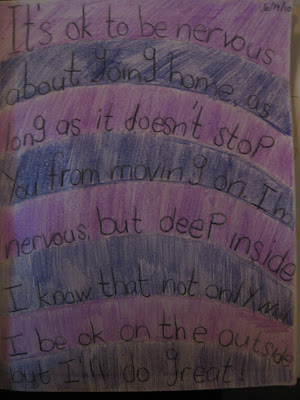 It's ok to be nervous
about going home, as
long as it doesn't stop
You from moving on. I'm
nervous, but deep inside
I know that not only will
I be ok on the outside
but I'll do great!